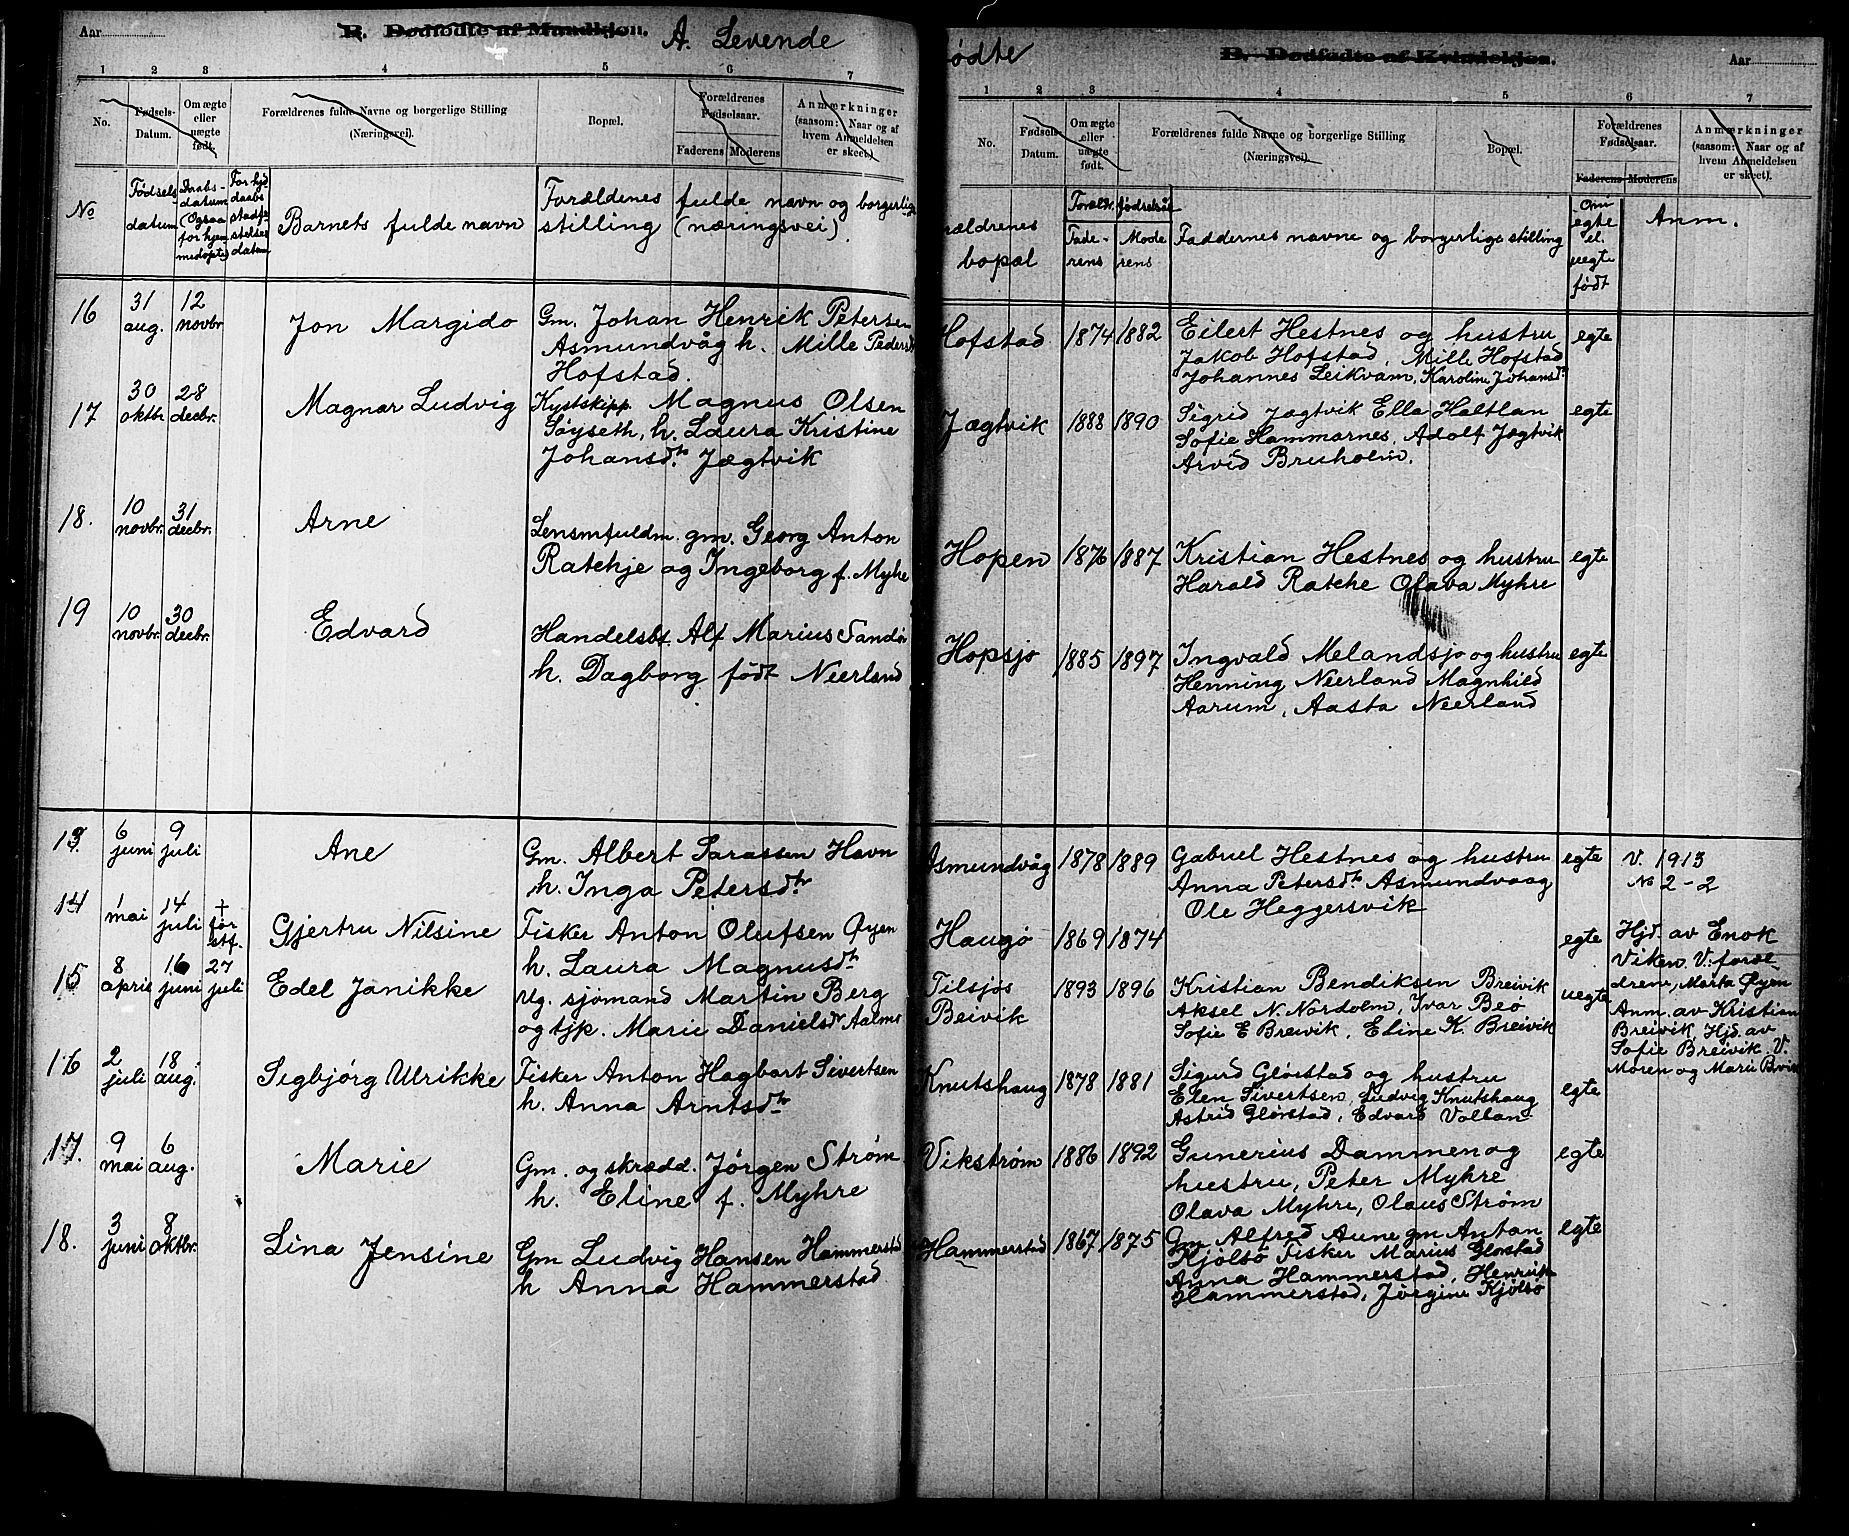 Aar
B. Dødfødte af Mandkjøn.
A. Levende
1 2 3 4 5 6 7
No.
Fødsels-
Datum.
Om ægte
eller
uægte
født.
Forældrenes fulde Navne og borgerlige Stilling
(Næringsvei.)
Bopæl.
Forældrenes
Fødselsaar.
Faderens Moderens
Anmærkninger
(saasom: Naar og af
hvem Anmeldelsen
er skeet.)
No
Fødsels
datum
Daabs-
datum
(Ogsaa
for hjem
medøpte)
For hjd.
daabs
stadfæ
stelses
datum
Barnets fulde navn
Forældenes fulde navn og borgerlige
stilling (næringsvei).
16
31
aug.
12
novbr
Jon Margido
Gm. Johan Henrik Petersen
Asmundvåg h. Mille Pedersdt
Hofstad.
17
30
oktb
28
decbr.
Magnar Ludvig
Kystskipp. Magnus Olsen
Søyseth, h. Laura Kristine
Johansdtr Jægtvik
18.
10
novbr.
31
decbr.
Arne
Lensmfuldm. gm. Georg Anton
Ratchje og Ingeborg f. Myhre
19
10
novbr.
30
decbr.
Edvard
Handelsbt. Alf Marius Sandø
h. Dagborg født Neerland
13.
6
juni
9
juli
Ane
Gm. Albert Sarassen Havn
h. Inga Petersdtr
14
1
mai
14
juli
+
før
stf.
Gjertru Nilsine
Fisker Anton Olufsen Øyen
h. Laura Magnusdtr
15
8
april
16
juni
27
juli
Edel Janikke
Ug. sjømand Martin Berg
og tjp. Marie Danielsdtr Aalmo
16
2
juli
18
aug.
Sigbjørg Ulrikke
Fisker Anton Hagbart Sivertsen
h. Anna Arntsdtr
17.
9
mai
6
aug.
Marie
Gm. og skrædd. Jørgen Strøm
h. Eline f. Myhre
18.
3
juni
8
oktbr.
Lina Jensine
Gm Ludvig Hansen Hammerstad
h Anna Hammerstad
ødte
B. Dødfødte af Kvindekjøn.
Aar
1 2 3 4 5 6 7
No.
Fødsels-
Datum.
Om ægte
eller
uægte
født.
Forældrenes fulde Navne og borgerlige Stilling
(Næringsvei.)
Bopæl.
Forældrenes
Fødselsaar.
Faderens Moderens
Anmærkninger
(saasom: Naar og af
hvem Anmeldelsen
er skeet).
rældrenes
bopæl
Forældr. fødselsår
Fade-
rens
Mode
rens
Faddernes navne og borgerlige stilling
Om
egte
el.
uegte
født
Anm.
Hofstad 1874 1882
Eilert Hestnes og hustru
Jakob Hofstad, Mille Hofstad
Johannes Leikvam, Karoline Johansdtr
egte
Jægtvik 1888 1890
Sigrid Jægtvik Ella Haltlan
Sofie Hammarnes, Adolf Jægtvik
Arvid Brusholm.
egte
Hopen 1876 1887
Kristian Hestnes og hustru
Harald Ratche Olava Myhre
egte
Hopsjø 1885 1897
Ingvald Melandsjø og hustru
Henning Neerland Magnhild
Aarum, Aasta Neerland
egte
Asmundvåg 1878 1889
Gabriel Hestnes og hustru
Anna Petersdtr Asmundvaag
Ole Heggersvik
egte
V. 1913
No 2-2
Haugø 1869 1874
egte
Hjd. av Enok
Viken. V: foræl-
drene, Marta Øyen
Tilsjøs
Breivik
1893 1896
Kristian Bendiksen Breivik
Aksel N. Nordolm, Ivar Beø
Sofie E Breivik, Eline K. Breivik
uegte
Anm. av Kristian
Breivik, Hjd. av
Sofie Breivik. V.
Moren og Marie Bvik
Knutshaug 1878 1881
Sigurd Glørstad og hustru
Elen Sivertsen, Ludvig Knutshaug
Astrid Glørstad, Edvard Vollan
egte
Vikstrøm 1886 1892
Gunerius Dammen og
hustru, Peter Myhre
Olava Myhre, Olaus Strøm
egte
Hammerstad 1867 1875
Gm Alfred Aune gm Anton
Kjølsø Fisker Marius Glørstad
Anna Hammerstad, Henrik
Hammerstad, Jørgine Kjølsø
egte